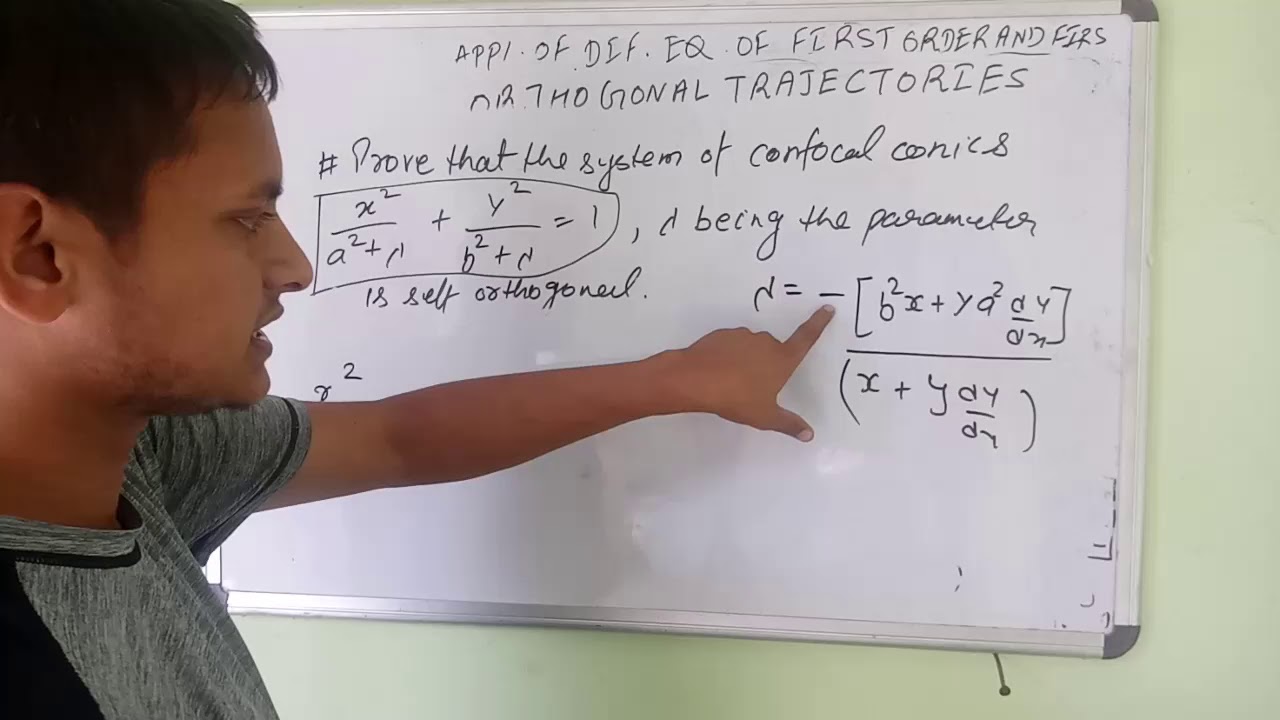 APPl. OF DIF. EQ. OF FIRST ORDER AND FIRS
ORTHOGONAL TRAJECTORIES
# Prove that the system of confocal conics
x²/(a²+λ) + y²/(b²+λ) = 1, λ being the parameter
is self orthogonal.
λ = -[b²x + ya² dy/dx] / (x + y dy/dx)
x²